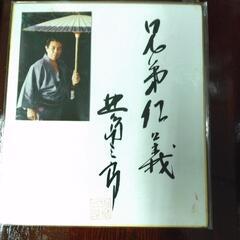 兄弟仁義
北島三郎